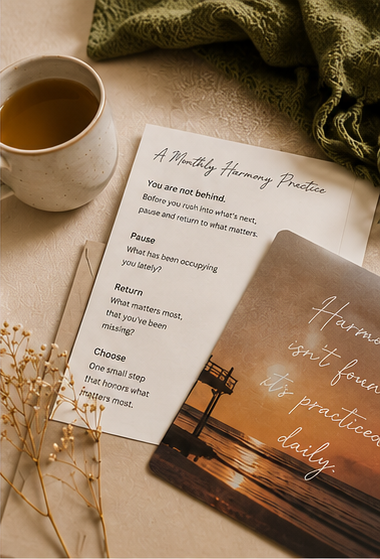 A Monthly Harmony Practice
You are not behind.
Before you rush into what's next,
pause and return to what matters.
Pause
What has been occupying
you lately?
Return
What matters most,
that you've been
missing?
Choose
One small step
that honors what
matters most.
isn't
it's practiced
daily.